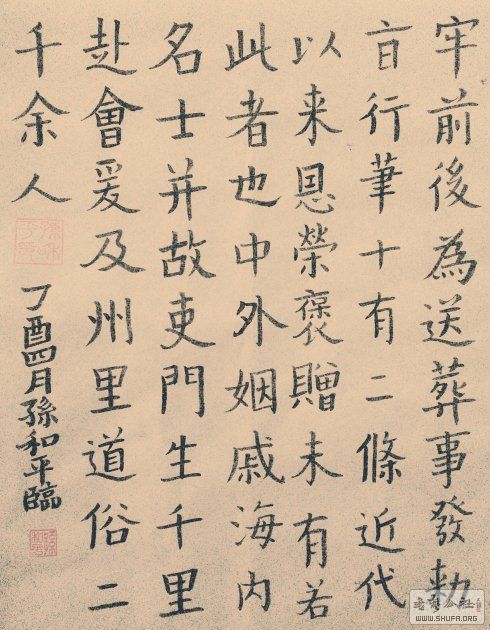 牢前後為送葬事發勅
旨行筆十有二條近代
以来恩榮褒贈未有若
此者也中外姻戚海内
名士并故吏門生千里
赴會爰及州里道俗二
千余人
丁酉四月孫和平臨
WWW.SHUFA.ORG